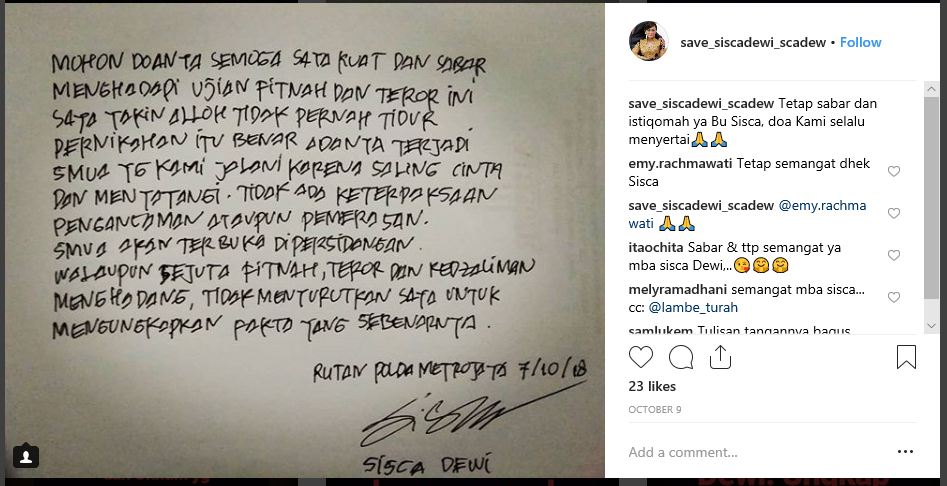 MOHON DOANYA SEMOGA SAYA KUAT DAN SABAR
MENGHADAPI UJIAN FITNAH DAN TEROR INI
SAYA YAKIN ALLOH TIDAK PERNAH TIDUR
PERNIKAHAN ITU BENAR ADANYA TERJADI
SMUA YG KAMI JALANI KARENA SALING CINTA
DAN MENYAYANGI. TIDAK ADA KETERPAKSAAN
PENGANCAMAN ATAUPUN PEMERASAN.
SMUA AKAN TERBUKA DIPERSIDANGAN.
WALAUPUN SEJUTA FITNAH, TEROR DAN KEDZALIMAN
MENGHADANG, TIDAK MENYURUTKAN SAYA UNTUK
MENGUNGKAPKAN FAKTA YANG SEBENARNYA.
RUTAN POLDA METROJAYA 7/10/18
SISCA DEWI
save_siscadewi_scadew • Follow
save_siscadewi_scadew Tetap sabar dan
istiqomah ya Bu Sisca, doa Kami selalu
menyertai🙏🙏
emy.rachmawati Tetap semangat dhek
Sisca
save_siscadewi_scadew @emy.rachma
wati 🙏🙏
itaochita Sabar & ttp semangat ya
mba sisca Dewi,..😘🤗🤗
melyramadhani semangat mba sisca...
cc: @lambe_turah
samlukem Tulisan tangannya bagus
23 likes
OCTOBER 9
Add a comment...